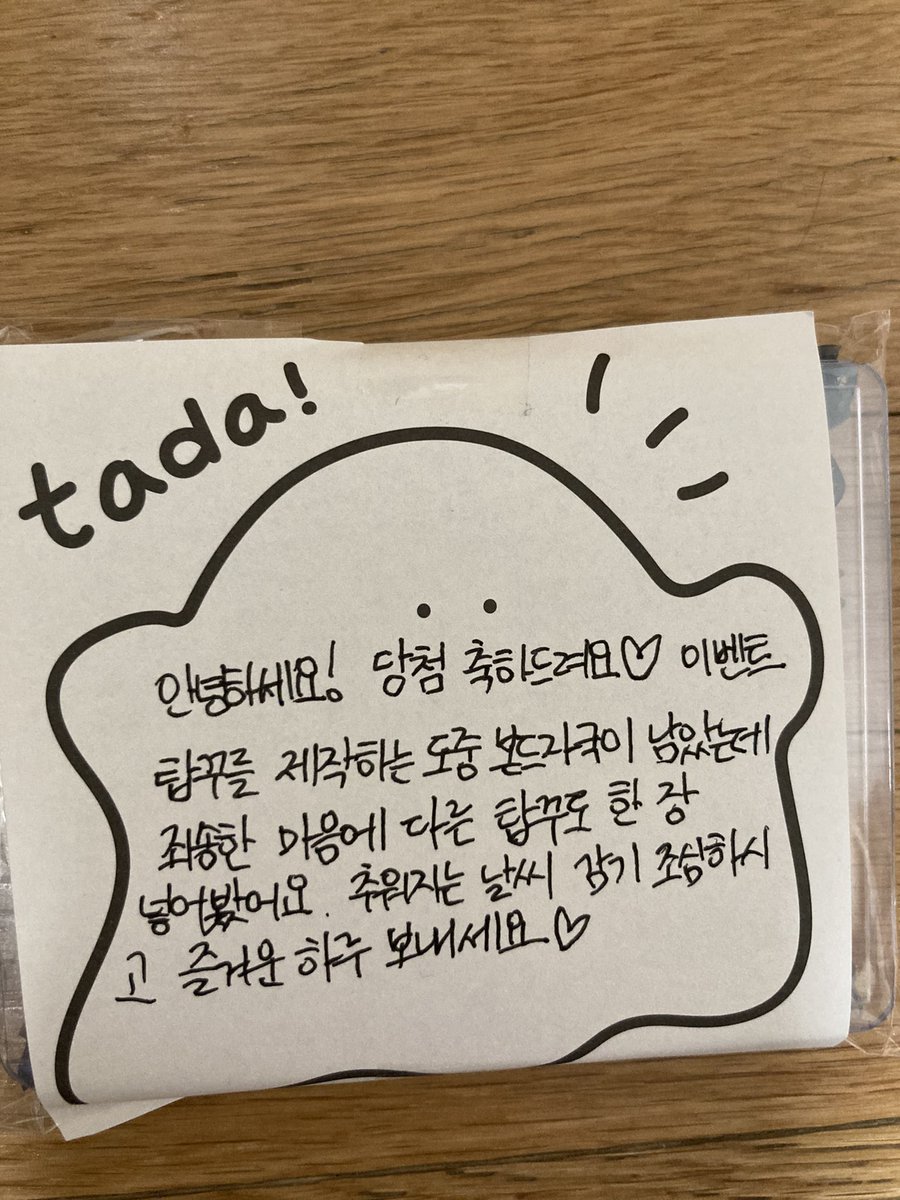 tada!
안녕하세요! 당첨 축하드려요♡ 이벤트
탑꾸를 제작하는 도중 본드자국이 남았는데
죄송한 마음에 다른 탑꾸도 한 장
넣어봤어요. 추워지는 날씨 감기 조심하시
고 즐거운 하루 보내세요♡